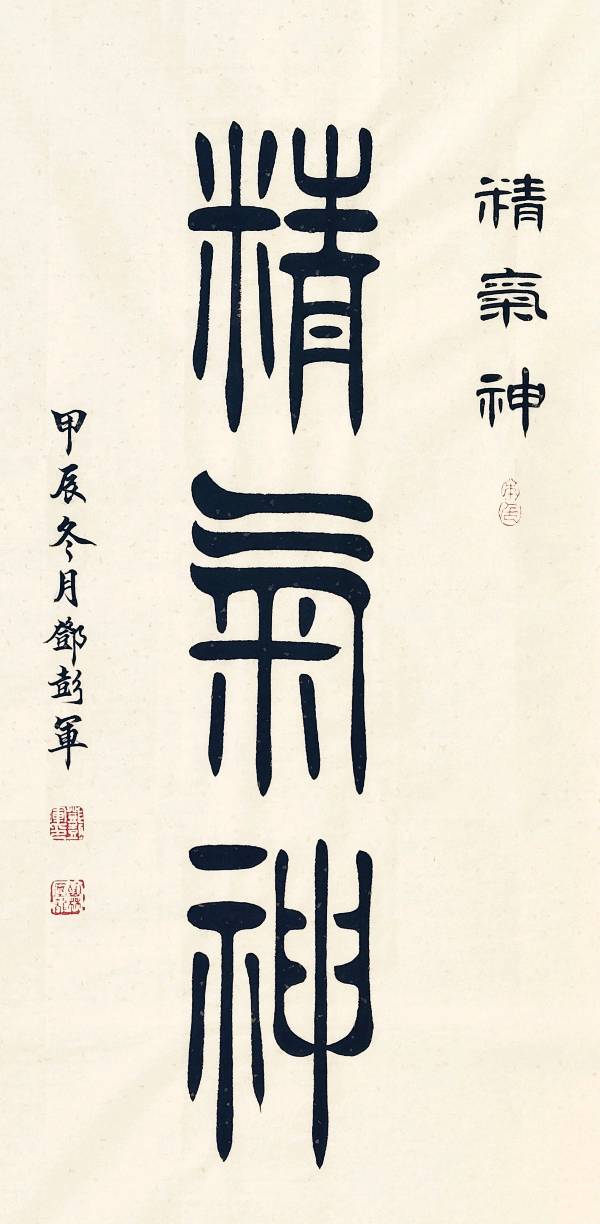 精氣神
精氣神
甲辰冬月鄧彭軍